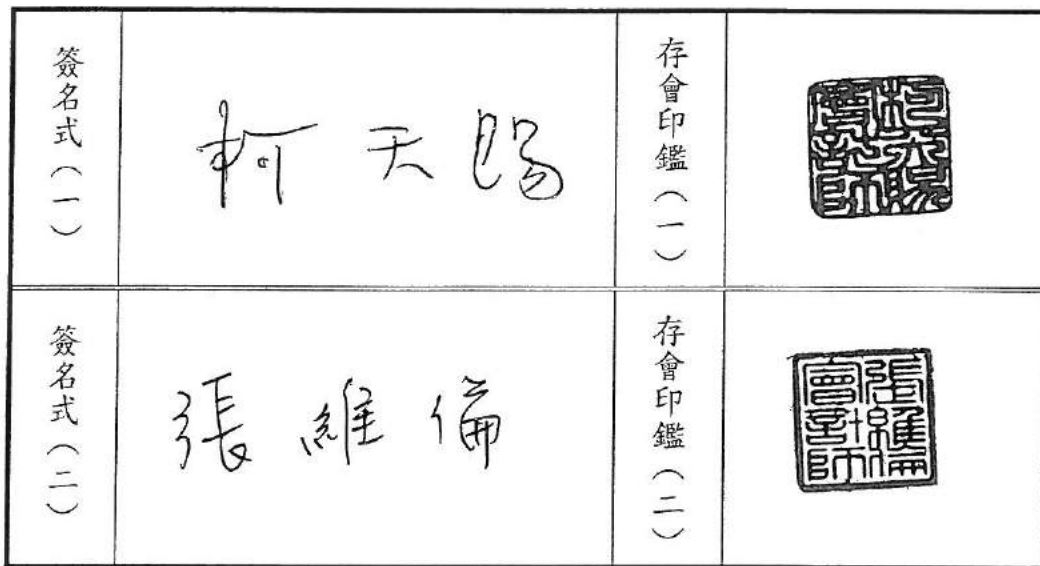 簽名式（一）
柯天賜
存會印鑑（一）
柯天賜會計師
簽名式（二）
張維倫
存會印鑑（二）
張維倫會計師